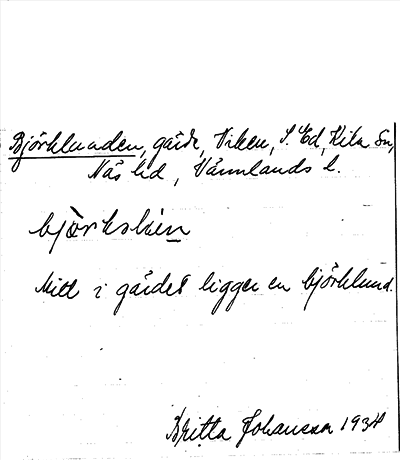 Björklunden, gärde, Viken, S. Ed, Kila sn,
Näs hd, Värmlands l.
Mitt i gärdet ligger en björklund.
Britta Johansson 1934